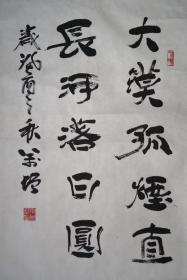 大漠孤烟直
長河落日圓
歲在
之秋